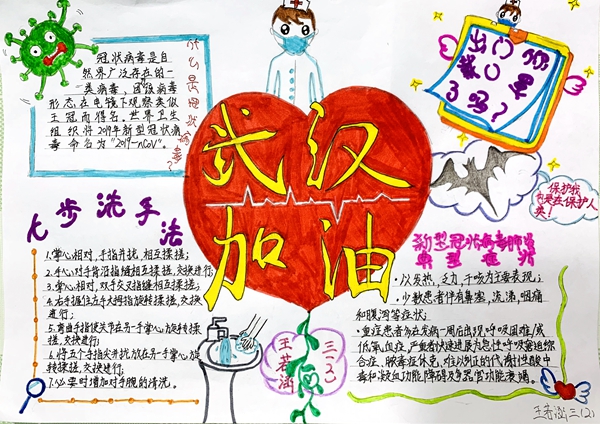 冠状病毒是自
然界广泛存在的一
类病毒，因该病毒
形态在电镜下观察类似
王冠而得名。世界卫生
组织将2019年新型冠状病
毒命名为"2019-nCoV"。
什么是冠状病毒？
出门
戴口罩
了吗？
武汉
加油
保护我
也是在保护人
类！
七步洗手法
1.掌心相对，手指并拢，相互揉搓；
2.手心对手背沿指缝相互揉搓，交换进行；
3.掌心相对，双手交叉指缝相互揉搓；
4.右手握住左手大拇指旋转揉搓，交换
进行；
5.弯曲手指使关节在另一手掌心旋转揉
搓，交换进行；
6.将五个手指尖并拢放在另一手掌心旋
转揉搓，交换进行；
7.必要时增加对手腕的清洗。
新型冠状病毒肺炎
典型症状
·以发热，乏力，干咳为主要表现；
·少数患者伴有鼻塞，流涕，咽痛
和腹泻等症状；
·重症患者多在发病一周后出现，呼吸困难/或
低氧血症，严重者快速进展为急性呼吸窘迫综
合症、脓毒症休克，难以纠正的代谢性酸中
毒和凝血功能障碍及多器官功能衰竭。
王若涵
三(2)
王若涵三(2)